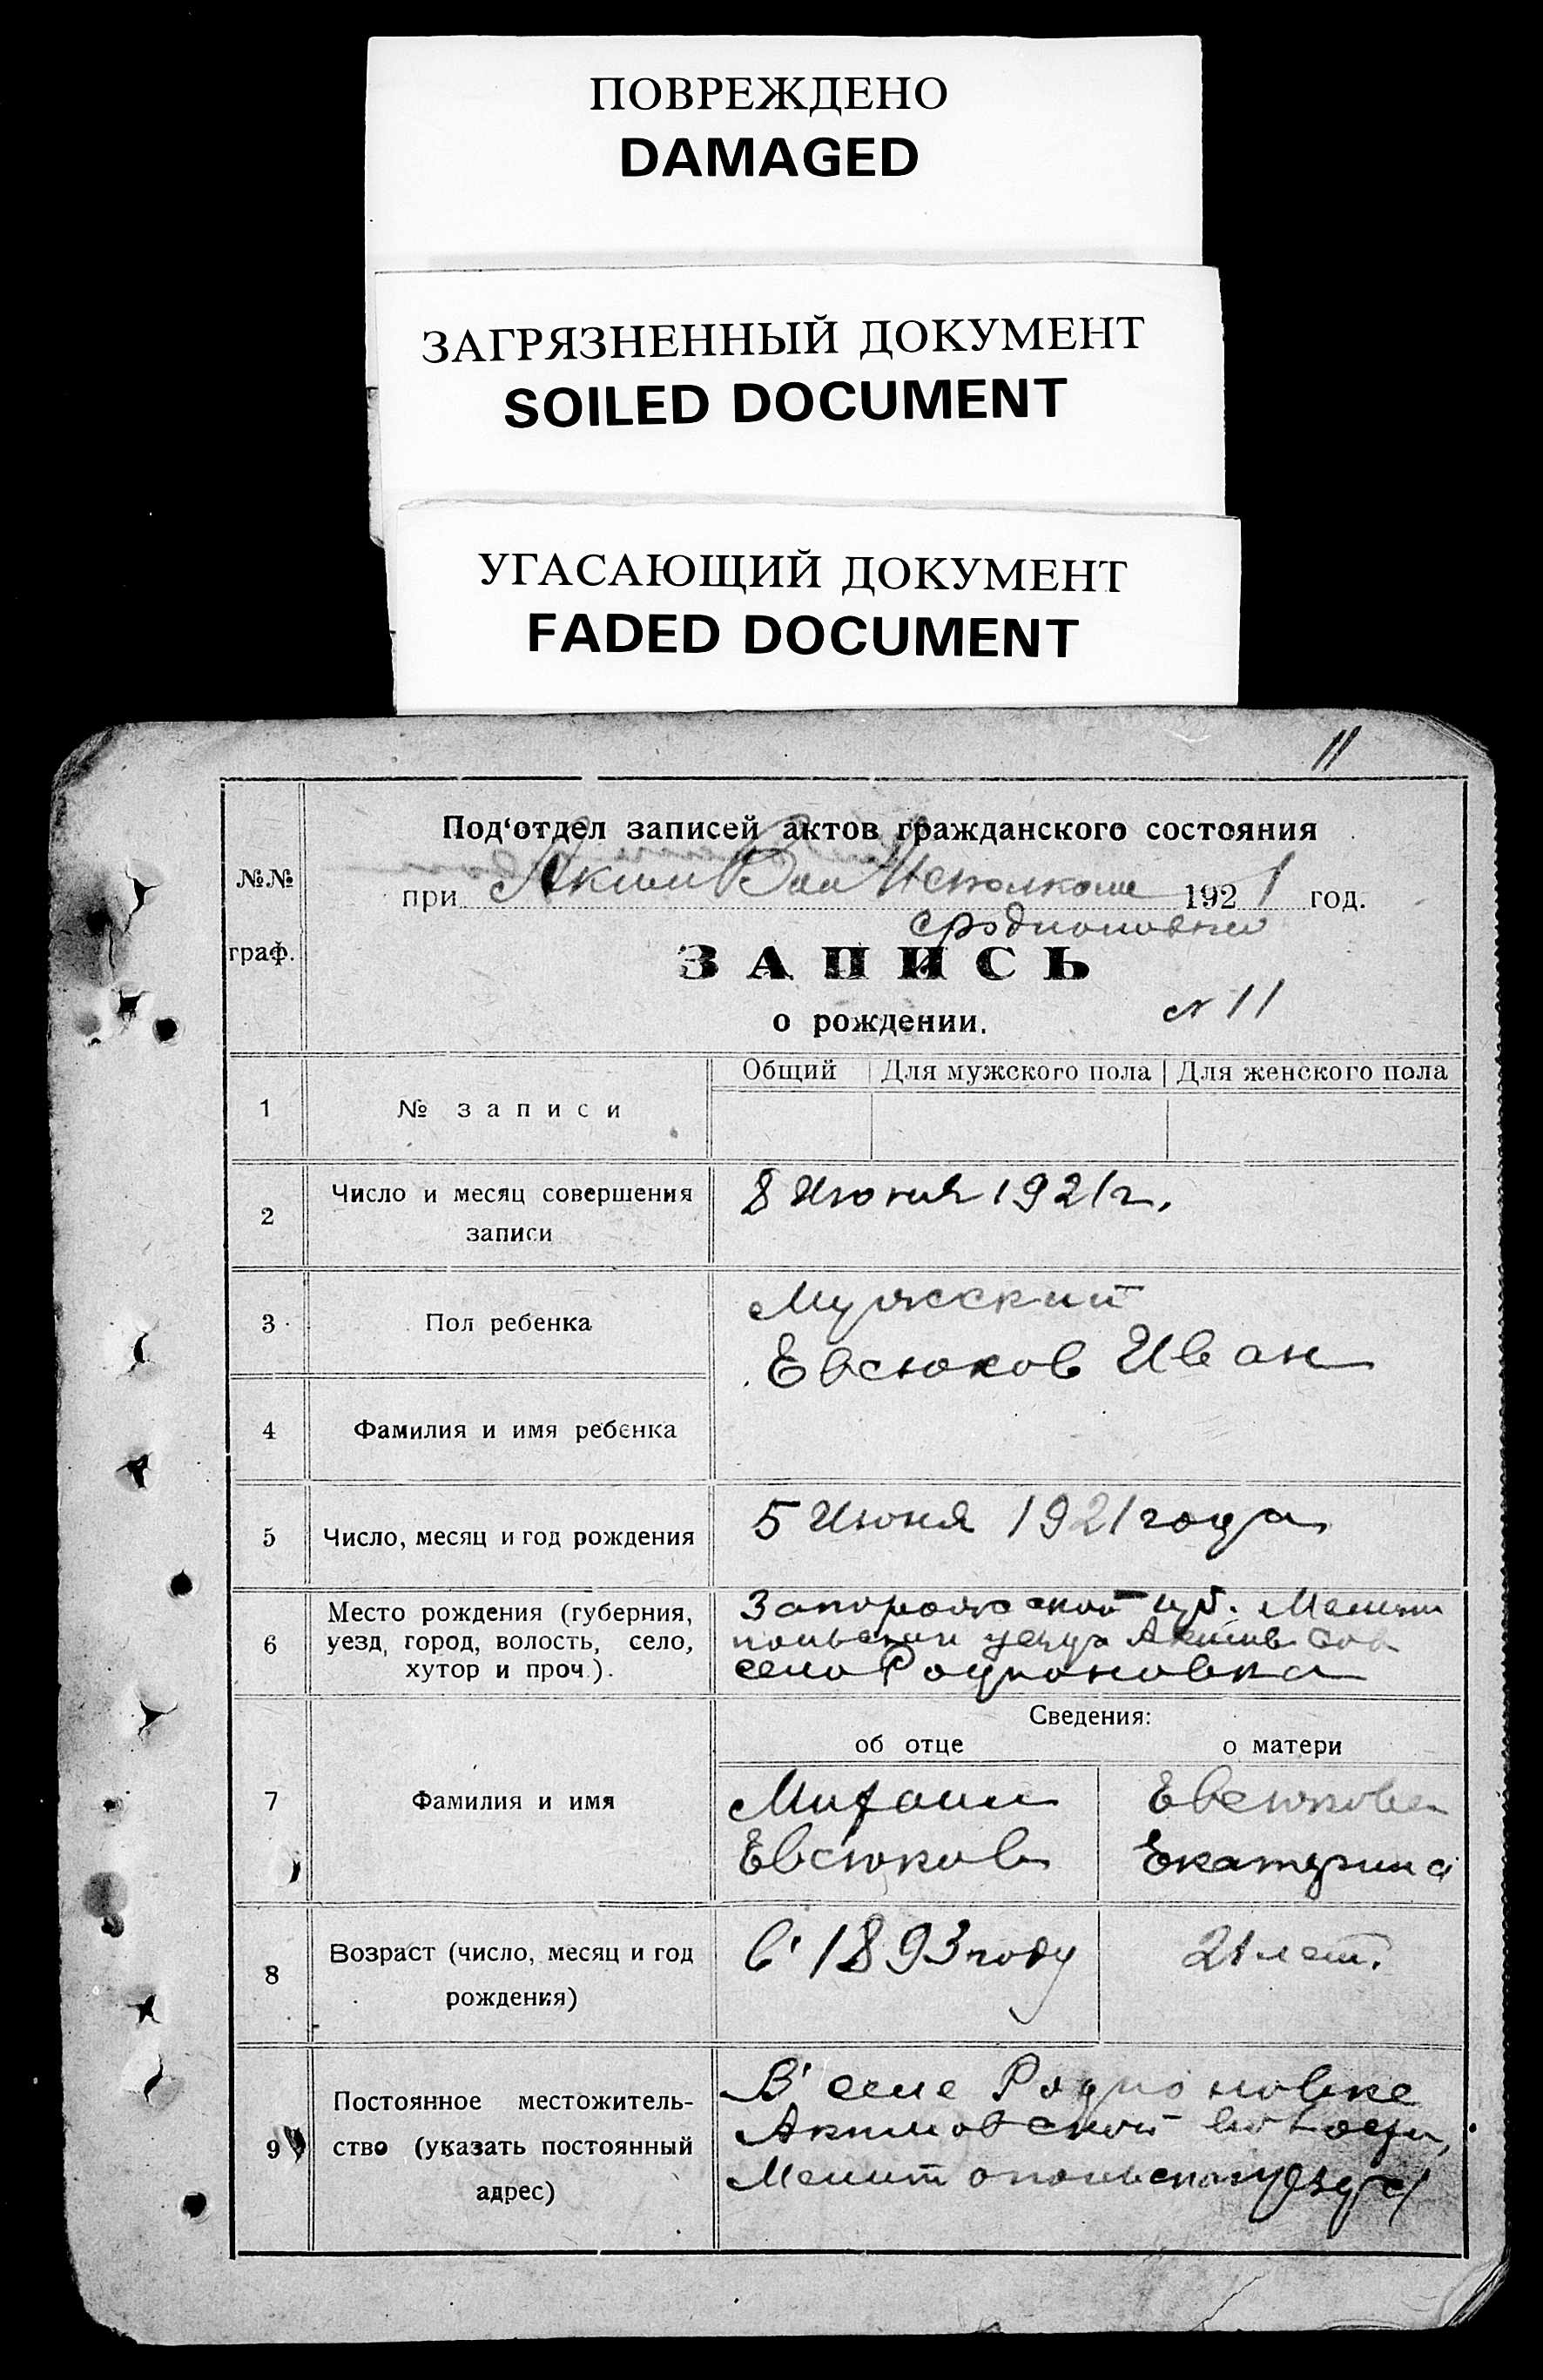 ПОВРЕЖДЕНО
DAMAGED
ЗАГРЯЗНЕННЫЙ ДОКУМЕНТ
SOILED DOCUMENT
УГАСАЮЩИЙ ДОКУМЕНТ
FADED DOCUMENT
11
№№
граф.
Под‘отдел записей актов гражданского состояния
при Аким Вол Исполкоме 1921 год.
с Родионовки
ЗАПИСЬ
о рождении.
N 11
Общий Для мужского пола Для женского пола
1 № записи
2 Число и месяц совершения
записи
8 Июня 1921 г.
3 Пол ребенка
Мужский
Евсюков Иван
4 Фамилия и имя ребенка
5 Число, месяц и год рождения
5 Июня 1921 года
6 Место рождения (губерния,
уезд, город, волость, село,
хутор и проч.).
Запорожской губ. Мелито
польскии уезда Акимв.
село Родионовка
Сведения:
об отце о матери
7 Фамилия и имя
Михаил
Евсюков
Евсюкова
Екатерина
8 Возраст (число, месяц и год
рождения)
в 1893 году
21 лет.
9 Постоянное местожитель-
ство (указать постоянный
адрес)
В селе Родионовке
Акимовской волости,
Мелитопольского уезда